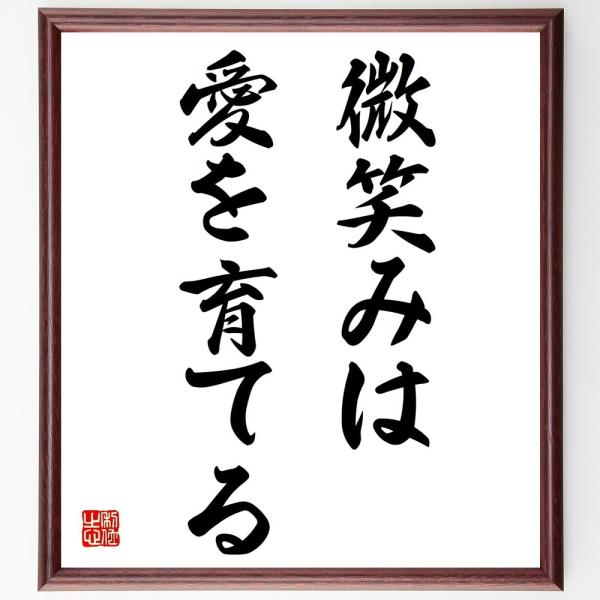 微笑みは
愛を育てる